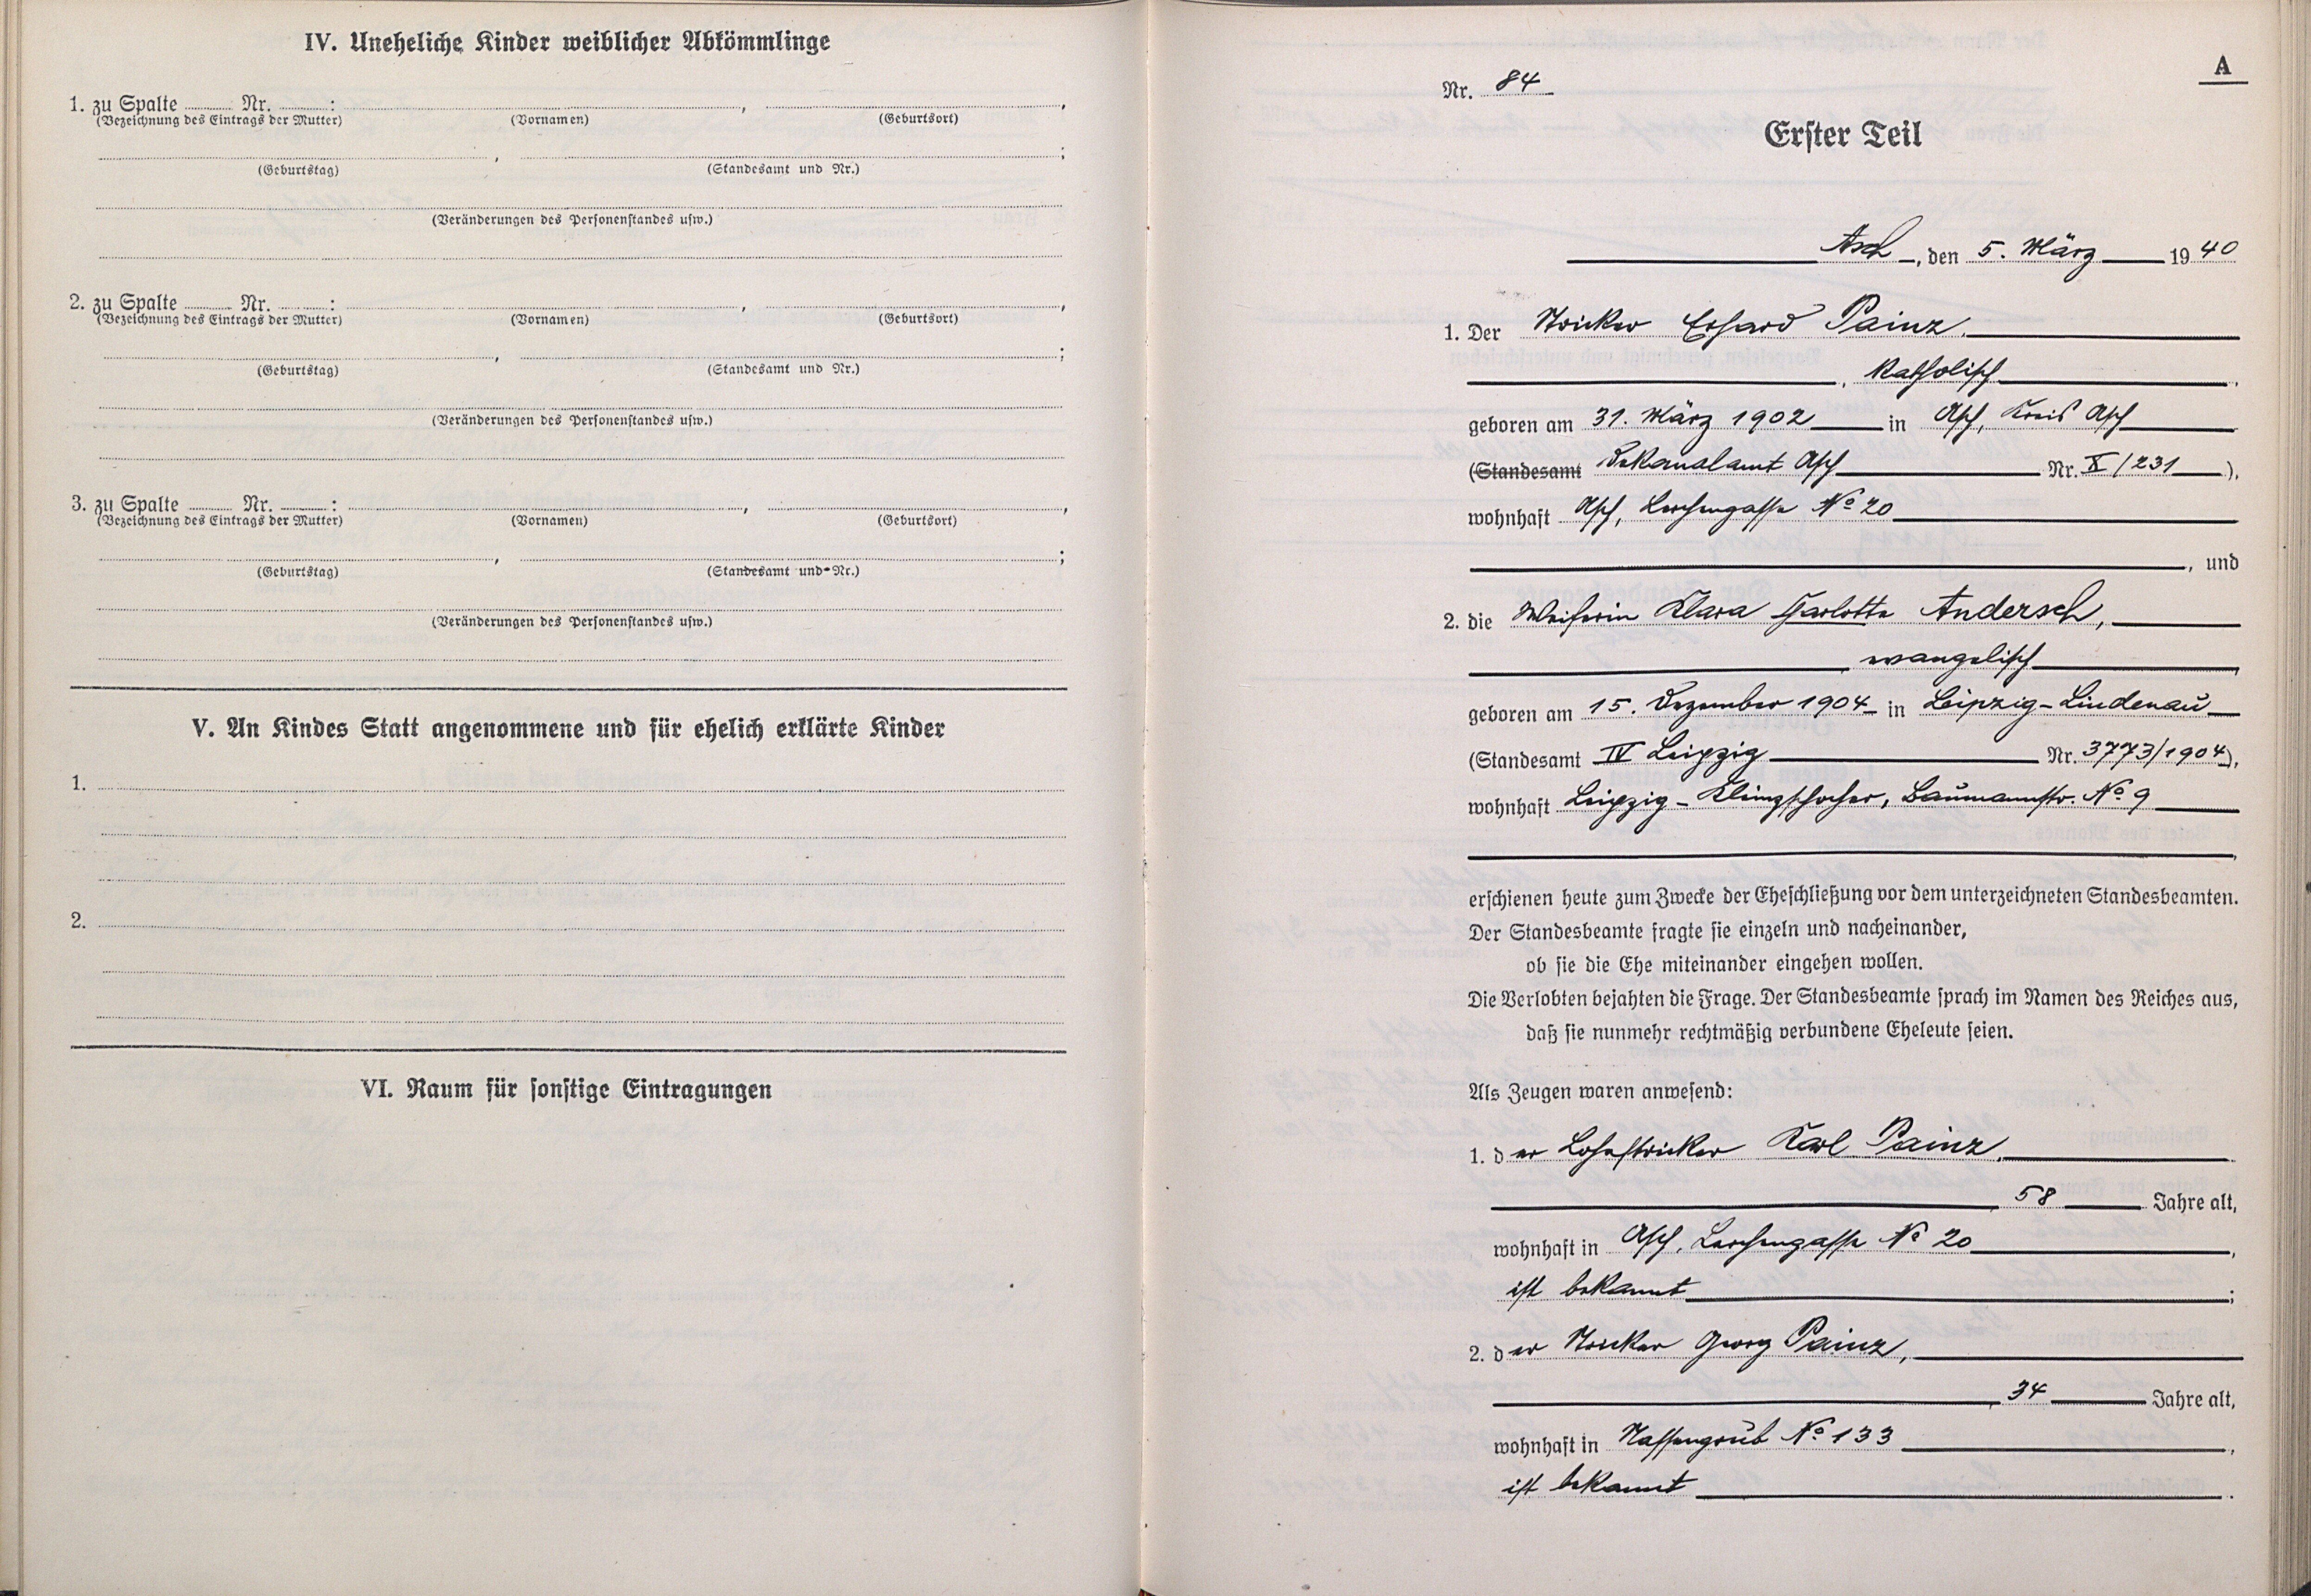 IV. Uneheliche Kinder weiblicher Abkömmlinge
1. zu Spalte Nr. : , ,
(Bezeichnung des Eintrags der Mutter) (Vornamen) (Geburtsort)
, ;
(Geburtstag) (Standesamt und Nr.)
(Veränderungen des Personenstandes usw.)
2. zu Spalte Nr. : , ,
(Bezeichnung des Eintrags der Mutter) (Vornamen) (Geburtsort)
, ;
(Geburtstag) (Standesamt und Nr.)
(Veränderungen des Personenstandes usw.)
3. zu Spalte Nr. : , ,
(Bezeichnung des Eintrags der Mutter) (Vornamen) (Geburtsort)
, ;
(Geburtstag) (Standesamt und Nr.)
(Veränderungen des Personenstandes usw.)
V. An Kindes Statt angenommene und für ehelich erklärte Kinder
1.
2.
VI. Raum für sonstige Eintragungen
A
Nr. 84
Erster Teil
Asch, den 5. März 1940
1. Der Stricker Erhard Painz,
, katholisch,
geboren am 31. März 1902 in Asch, Kreis Asch
(Standesamt Dekanalamt Asch Nr. X/231),
wohnhaft Asch, Lerchengasse No 20
, und
2. die Weiferin Klara Charlotte Andersch,
, evangelisch,
geboren am 15. Dezember 1904 in Leipzig-Lindenau
(Standesamt IV Leipzig Nr. 3773/1904),
wohnhaft Leipzig-Kleinzschocher, Baumannstr. No 9
,
erschienen heute zum Zwecke der Eheschließung vor dem unterzeichneten Standesbeamten.
Der Standesbeamte fragte sie einzeln und nacheinander,
ob sie die Ehe miteinander eingehen wollen.
Die Verlobten bejahten die Frage. Der Standesbeamte sprach im Namen des Reiches aus,
daß sie nunmehr rechtmäßig verbundene Eheleute seien.
Als Zeugen waren anwesend:
1. der Lohnstricker Karl Painz,
58 Jahre alt,
wohnhaft in Asch, Lerchengasse No 20,
ist bekannt;
2. der Stricker Georg Painz,
34 Jahre alt,
wohnhaft in Nassengrub No 133,
ist bekannt.